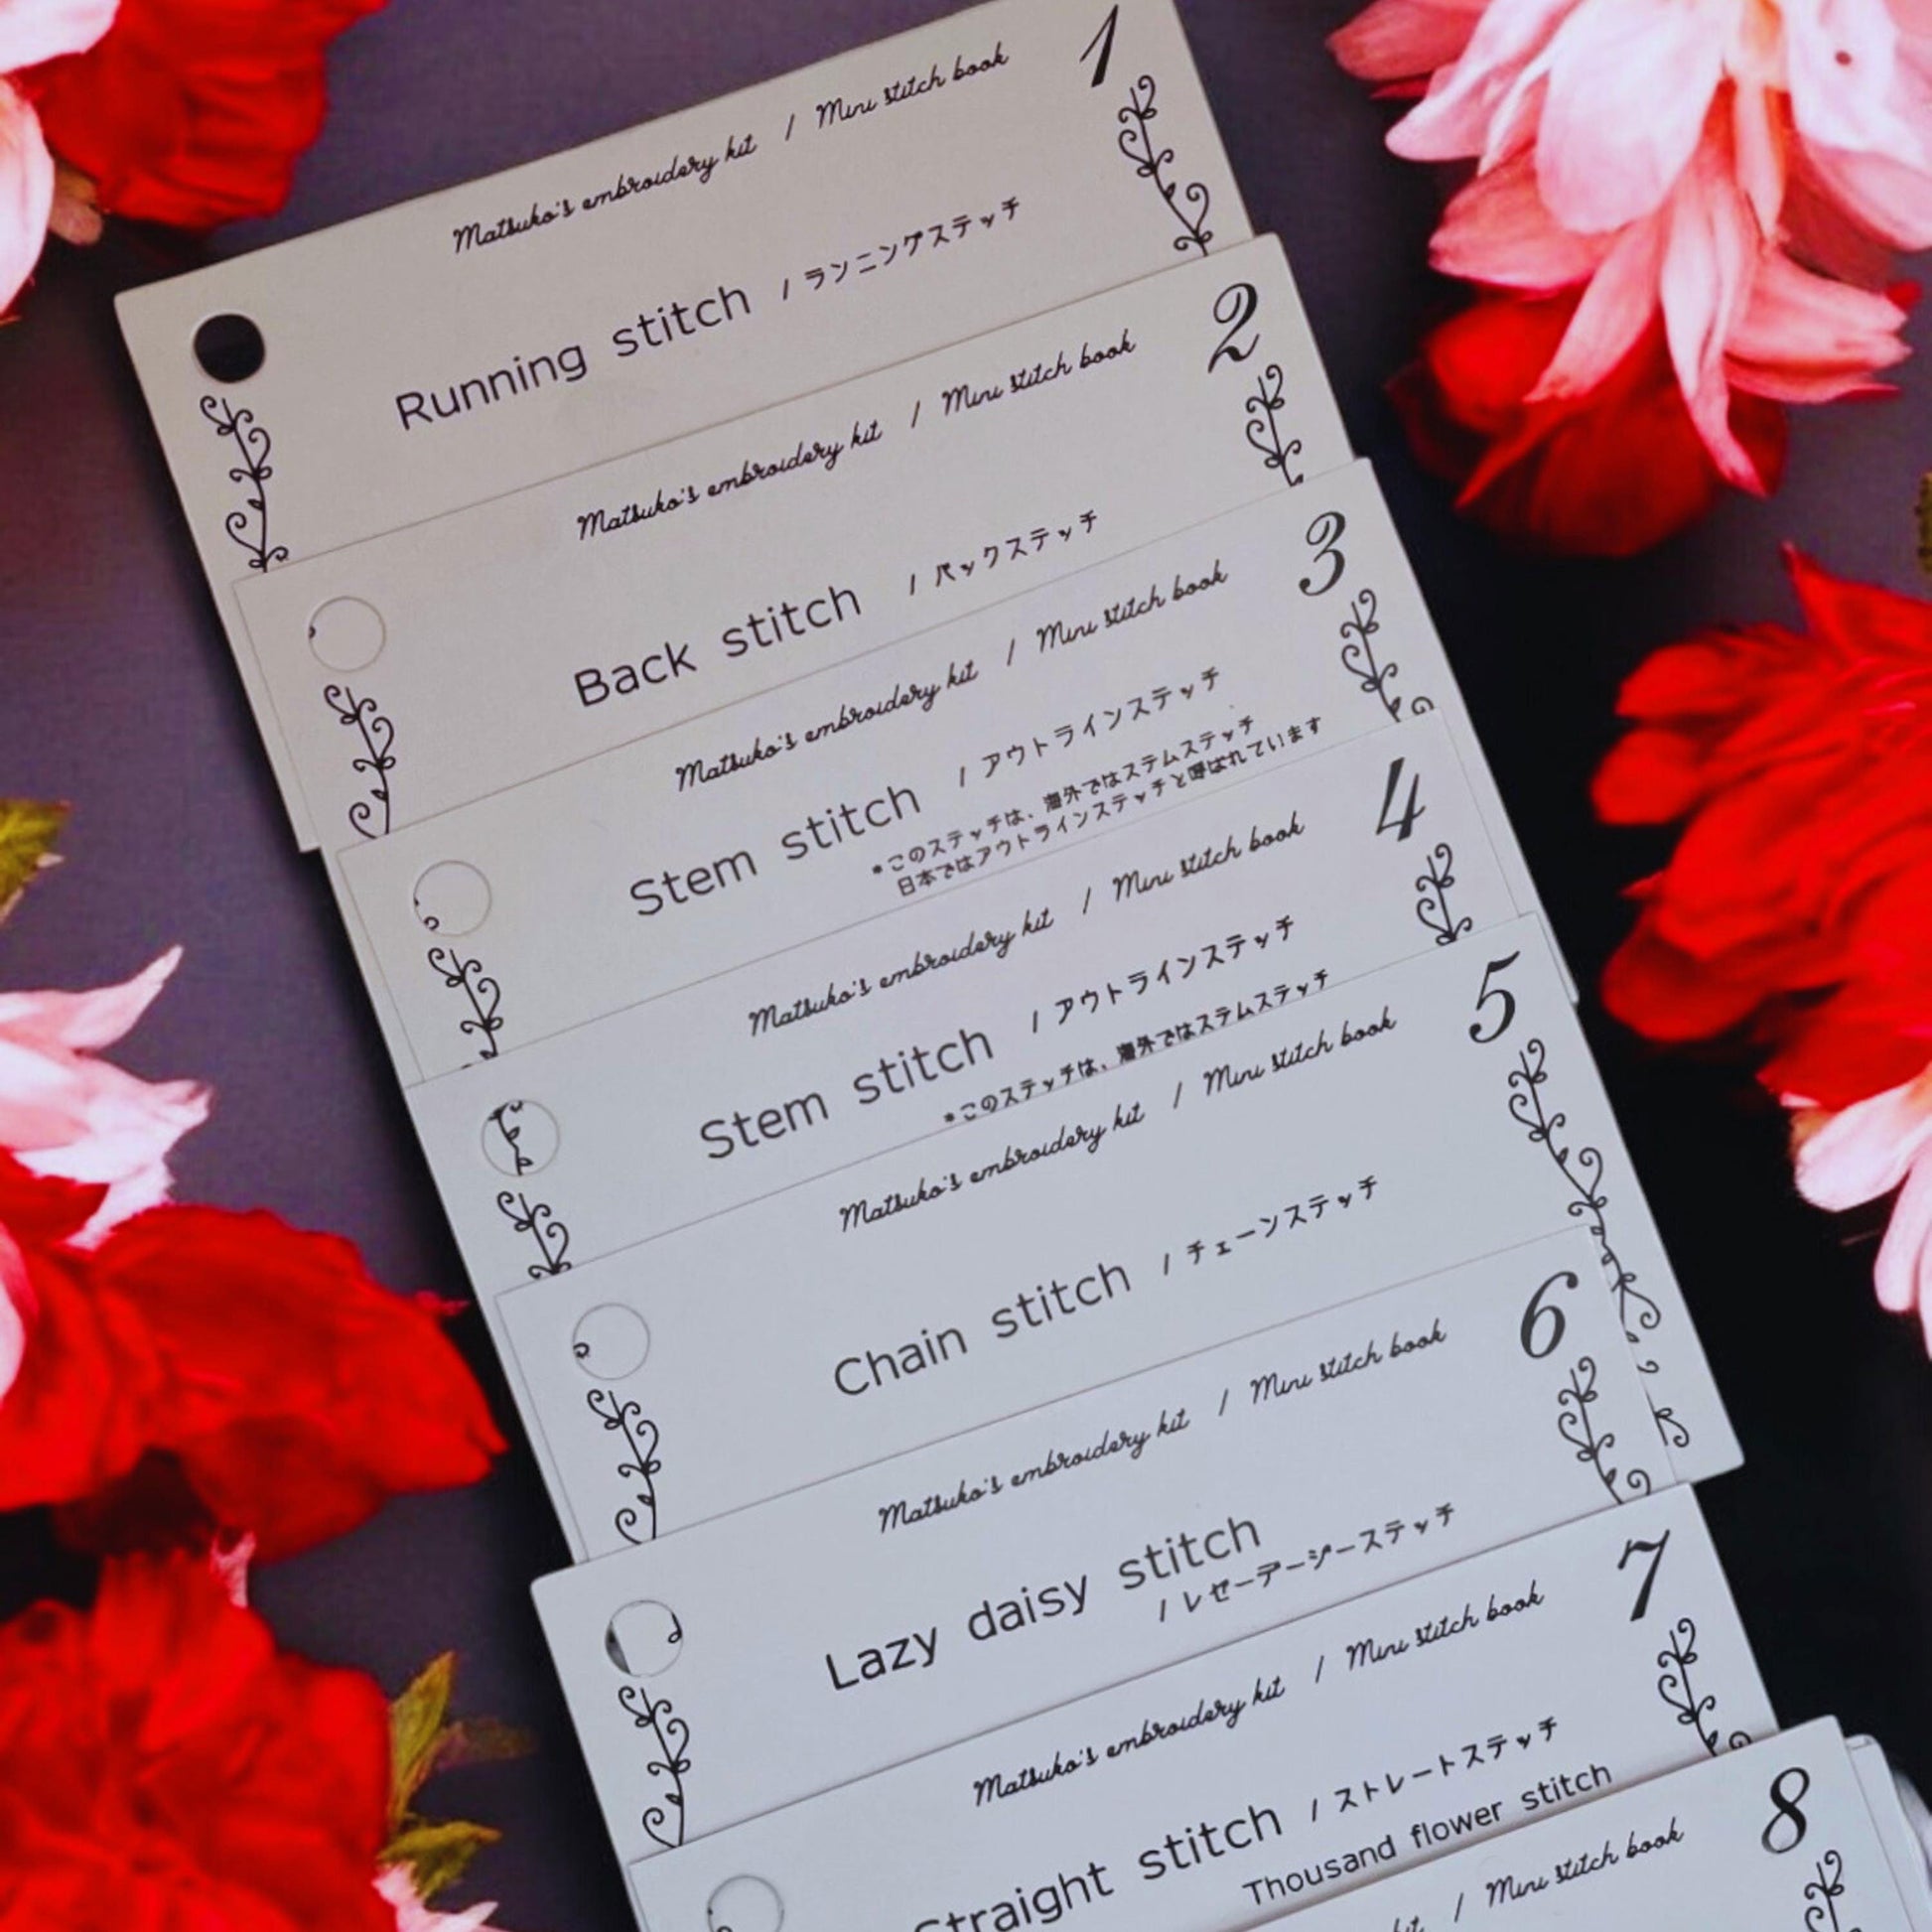 Matsuko's embroidery kit / Mini stitch book 1
Running stitch / ランニングステッチ
Matsuko's embroidery kit / Mini stitch book 2
Back stitch / バックステッチ
Matsuko's embroidery kit / Mini stitch book 3
Stem stitch / アウトラインステッチ
*このステッチは、海外ではステムステッチ
日本ではアウトラインステッチと呼ばれています
Matsuko's embroidery kit / Mini stitch book 4
Stem stitch / アウトラインステッチ
*このステッチは、海外ではステムステッチ
Matsuko's embroidery kit / Mini stitch book 5
Chain stitch / チェーンステッチ
Matsuko's embroidery kit / Mini stitch book 6
Lazy daisy stitch
/ レゼーデージーステッチ
Matsuko's embroidery kit / Mini stitch book 7
Straight stitch / ストレートステッチ
Thousand flower stitch
kit / Mini stitch book 8